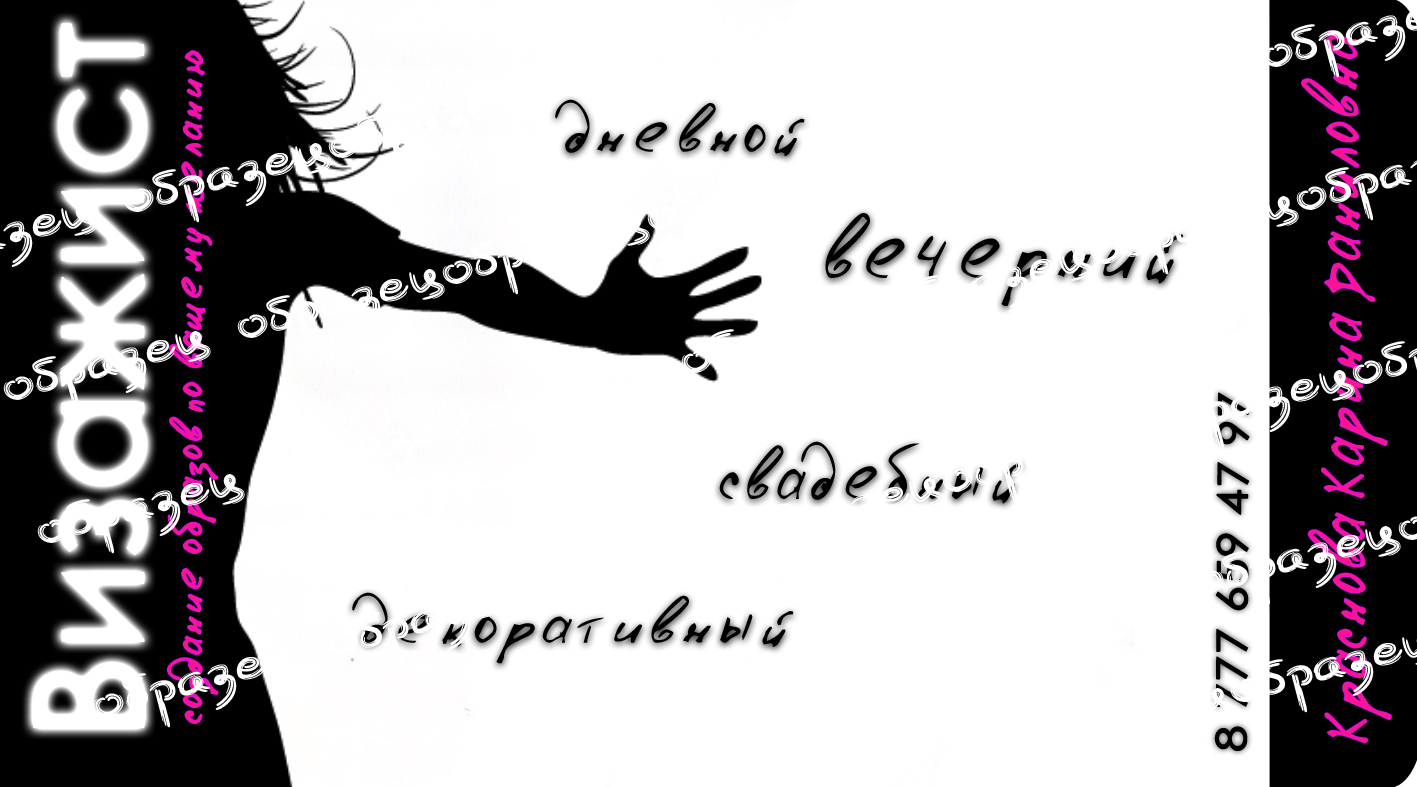 Визажист
создание образов по вашему желанию
дневной
вечерний
свадебный
декоративный
8 777 659 47 97
Краснова Карина Даниловна
образец
образец
образец
образец
образец
образец
образец
образец
образец
образец
образец